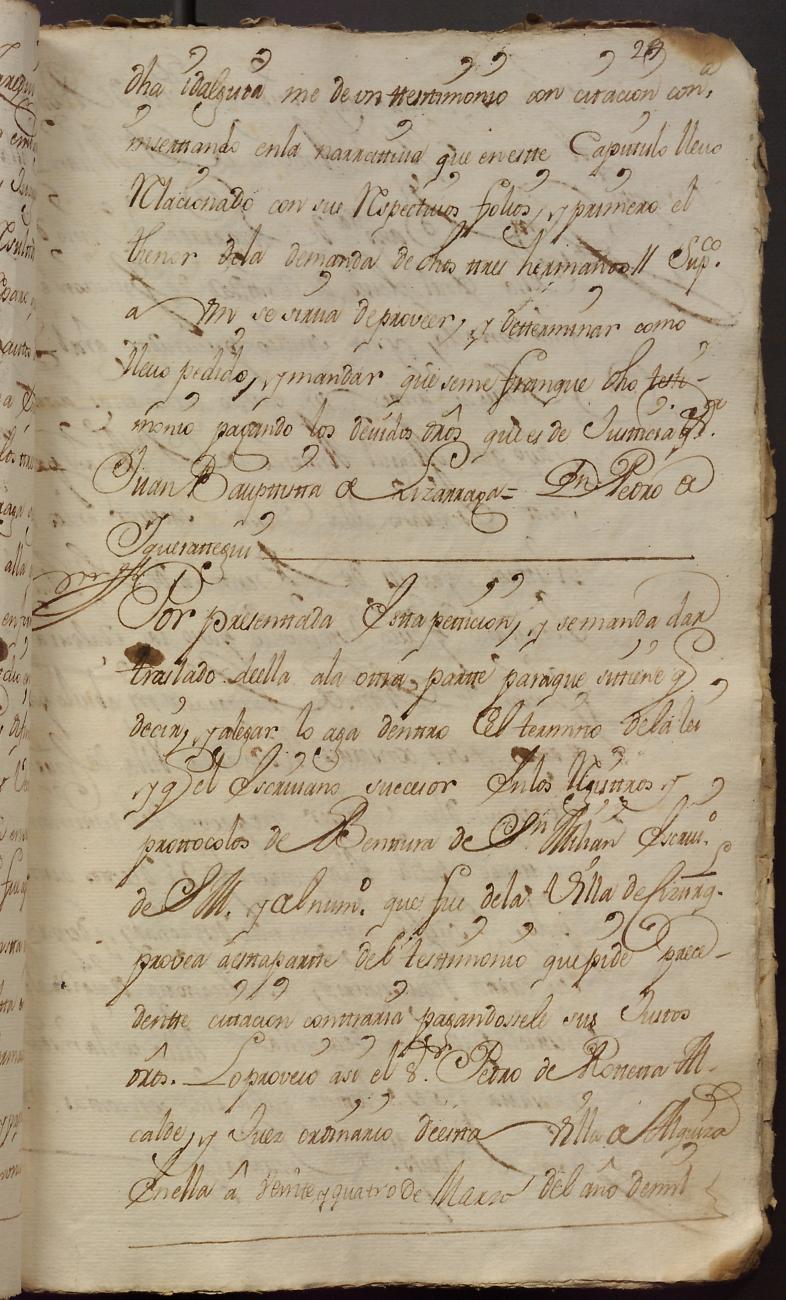 29
dha idalguia me de un ttesttimonio con cittacion conª,
insertando en la narrattiva que en estte Capittulo llevo
Relacionado con sus Respectivos folios, y primero el
thenor de la demanda de dhos tres hermanos // Supco.
a Vm se sirva de proveer, y determinar como
llevo pedido, y mandar que se me franque dho testi-
monio pagando los devidos dros, que es de Justicia
Juan Bauptistta de Lizarraga = Dn Pedro de
Iguerattegui
Por presenttada Estta petticion, y se manda dar
traslado de ella a la ottra partte para que si tiene q
decir, y alegar lo aga denttro El termino de la lei
y q el Escrivano succesor En los Rexisttros y
prottocolos de Benttura de Sn Millan Escriv.o
de S M. y del num.o que fue de la Villa de
provea a estta partte del testtimonio que pide prece-
dentte cittacion conttraria pagandosele sus Justtos
dros. Lo proveio asi el Sr. Pedro de Al-
calde, y Juez ordinario de estta Villa de
En ella â veinte y quatro de Marzo del año de mil